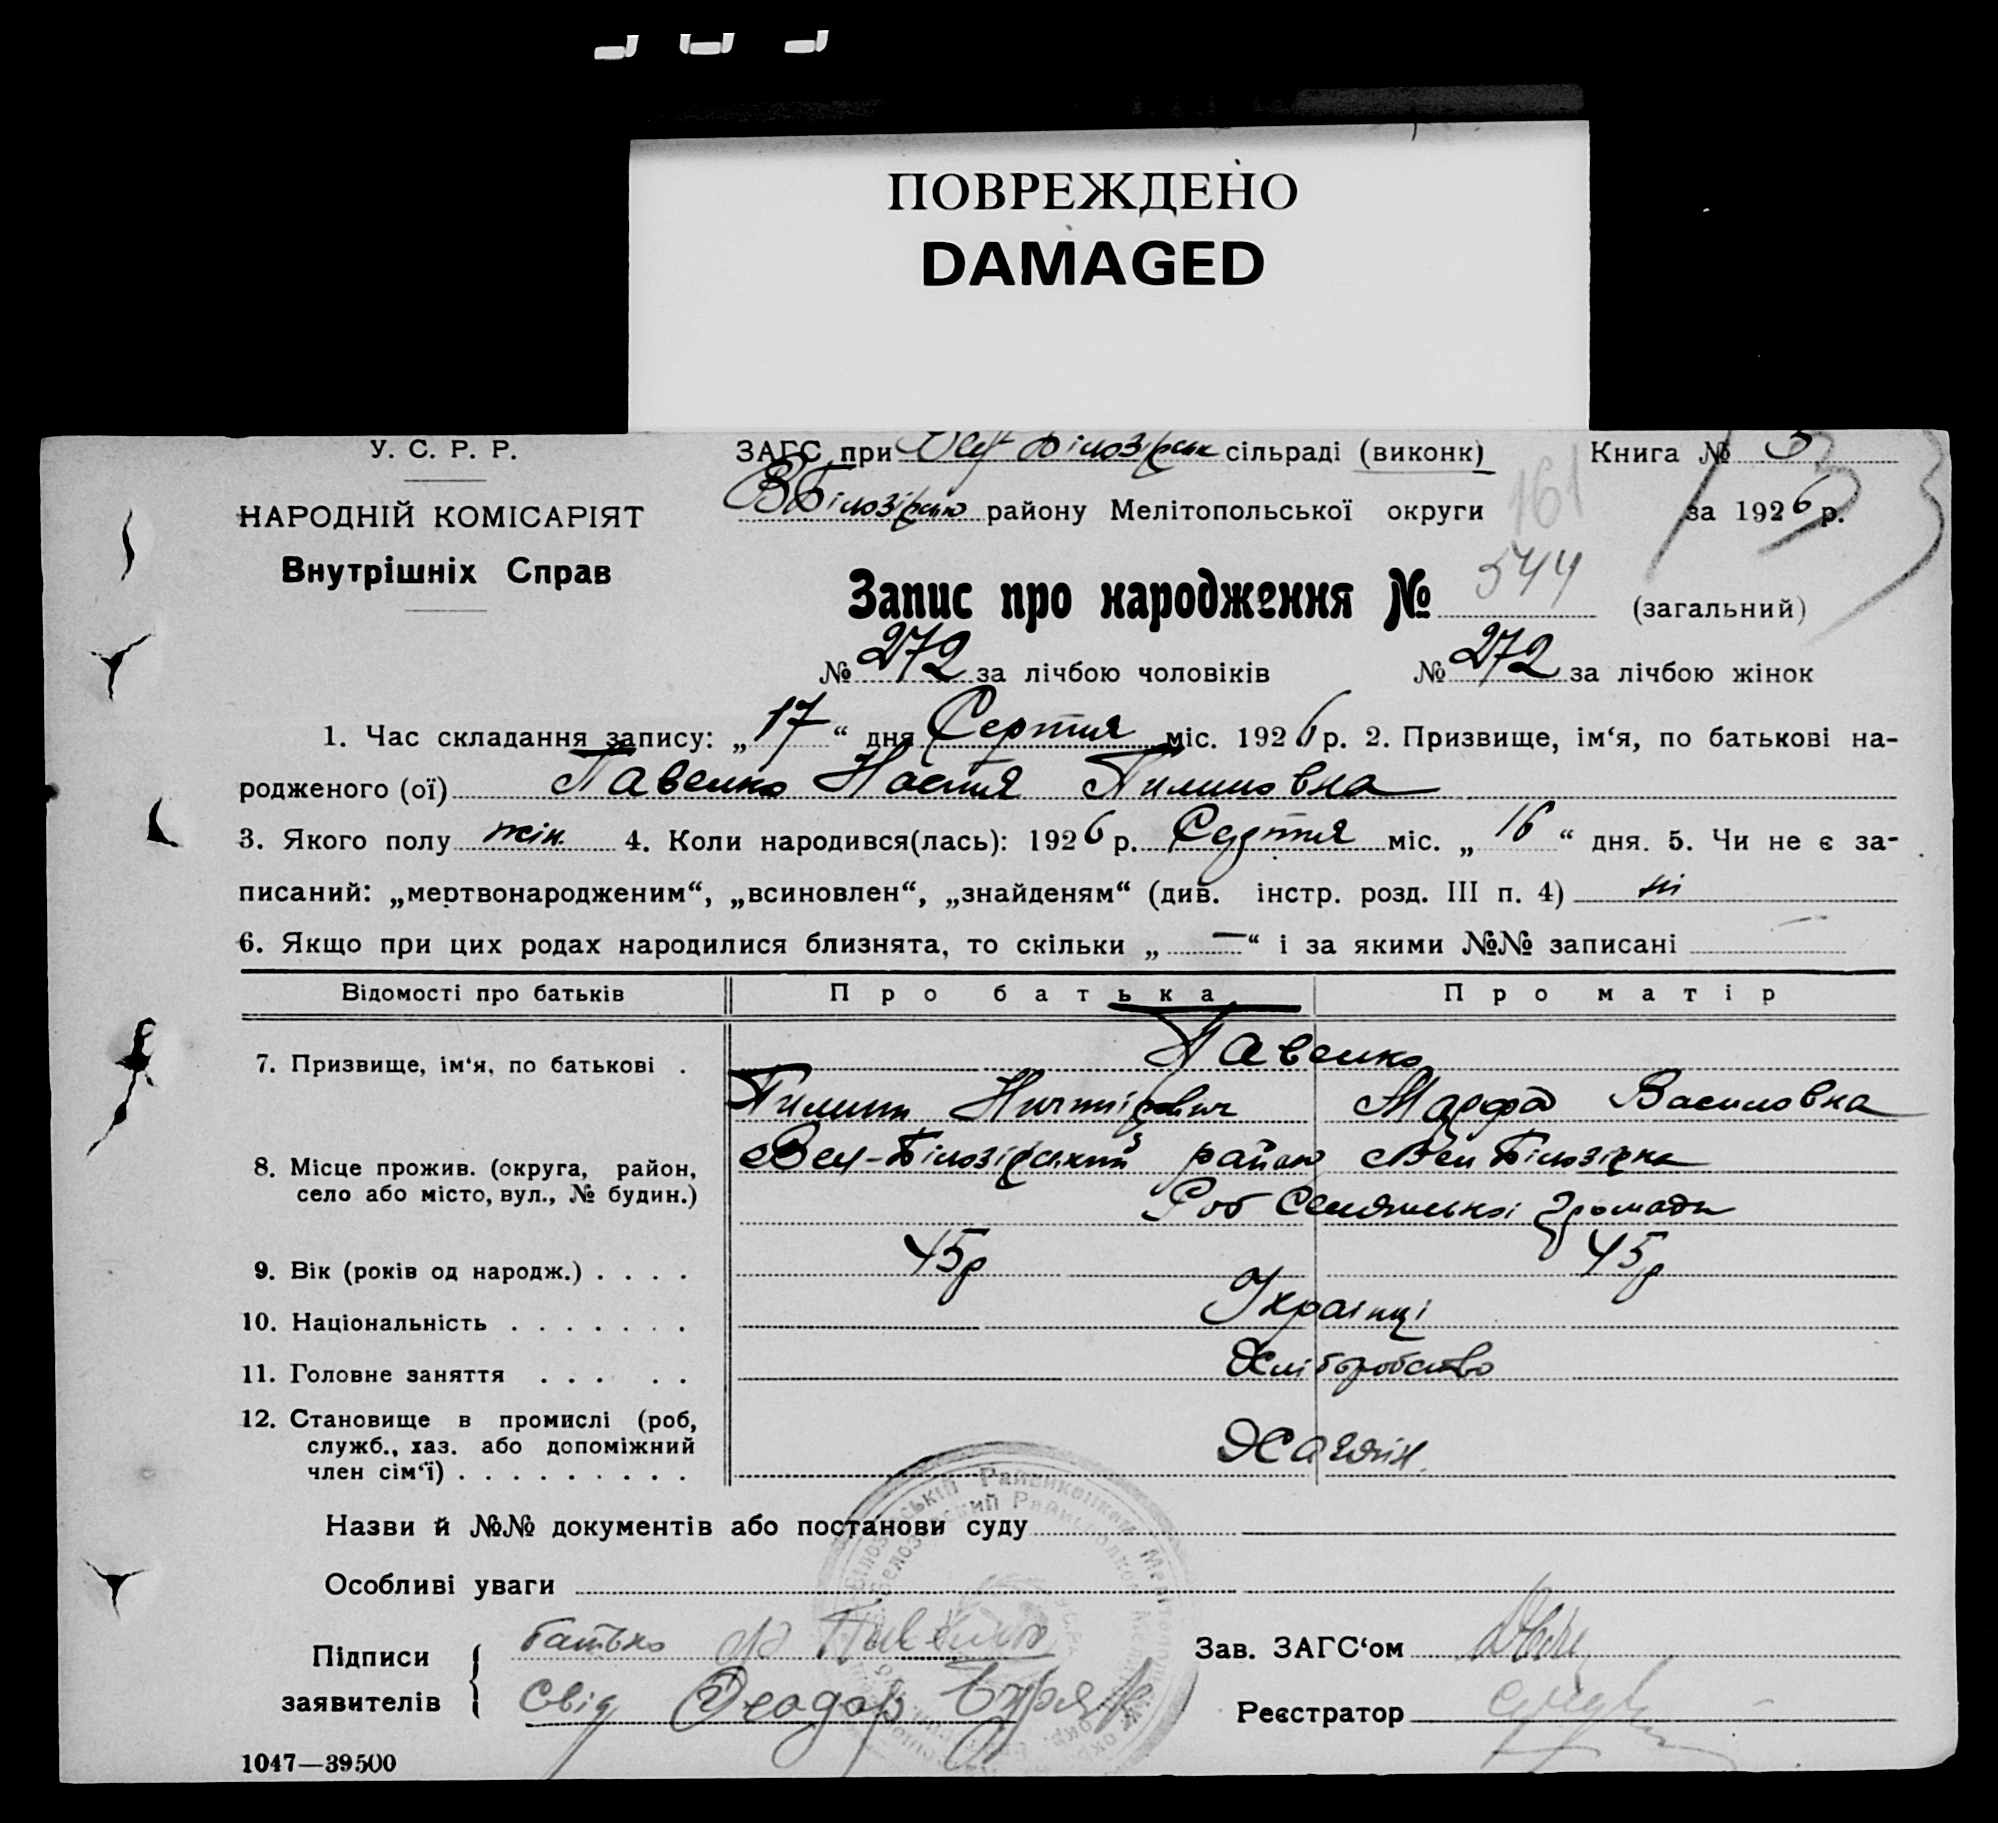 ПОВРЕЖДЕНО
DAMAGED
У. С. Р. Р.
НАРОДНІЙ КОМІСАРІЯТ
Внутрішніх Справ
ЗАГС при Вел Білозірськ сільраді (виконк) Книга № 3
ВБілозірсько району Мелітопольської округи 161 за 1926 р.
Запис про народження № 544 (загальний)
№ 272 за лічбою чоловіків № 272 за лічбою жінок
1. Час складання запису: „ 17 “ дня Серпня міс. 1926 р. 2. Призвище, ім‘я, по батькові на-
родженого (ої) Павенко Настя Пилиповна
3. Якого полу жін. 4. Коли народився(лась): 1926 р. Серпня міс. „ 16 “ дня. 5. Чи не є за-
писаний: „мертвонародженим“, „всиновлен“, „знайденям“ (див. інстр. розд. III п. 4) ні
6. Якщо при цих родах народилися близнята, то скільки „ — “ і за якими №№ записані —
Відомості про батьків Про батька Про матір
7. Призвище, ім‘я, по батькові . Павенко
Пилип Ничипірович Марфа Василовна
8. Місце прожив. (округа, район, Вел-Білозірський район Вел Білозірка
село або місто, вул., № будин.) Селянської громади
9. Вік (років од народж.) . . . . 45р 45р
10. Національність . . . . . . . Українці
11. Головне заняття . . . . . Хліборобство
12. Становище в промислі (роб,
служб., хаз. або допоміжний Хазяїн.
член сім‘ї) . . . . . . . . . .
Назви й №№ документів або постанови суду
Особливі уваги
Підписи батько Павенко Зав. ЗАГС‘ом
заявителів свід Феодор Реєстратор
1047—39500